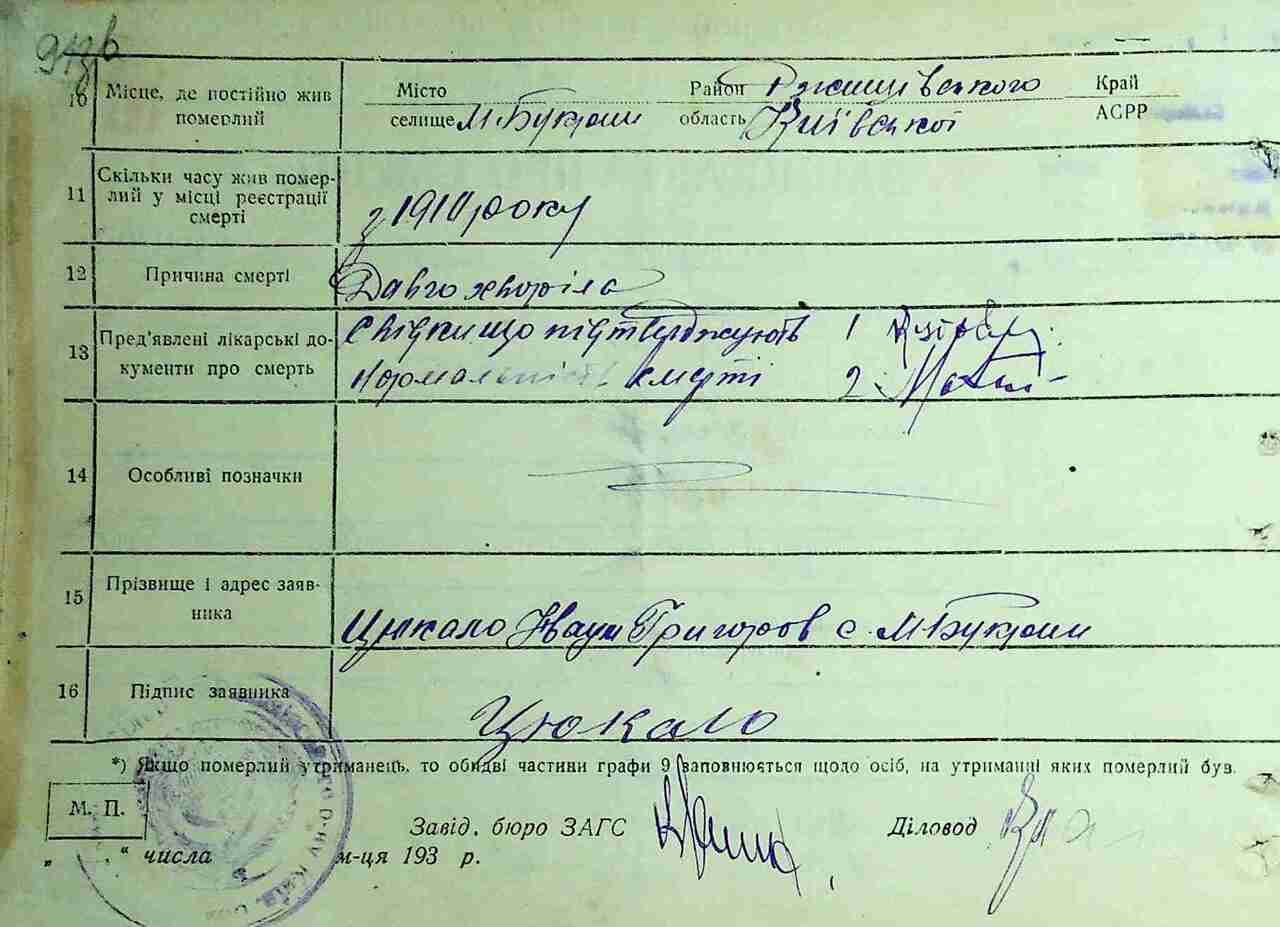 10 Місце, де постійно жив Місто Район Ржищівського Край
померлий селище М-Букрин область Київської АСРР
11 Скільки часу жив помер-
лий у місці реєстрації
смерті
з 1910 року
12 Причина смерті Давго хворіла
13 Пред'явлені лікарські до-
кументи про смерть
Свідки що підтверджують 1
Нормальність смерті 2.
14 Особливі позначки
15 Прізвище і адрес заяв-
ника
Цюкало Іван Григоров с. М-Букрин
16 Підпис заявника Цюкало
*) Якщо померлий утриманець, то обидві частини графи 9 заповнюється щодо осіб, на утриманні яких померлий був.
М. П.
Завід. бюро ЗАГС Діловод
„ “ числа м-ця 193 р.